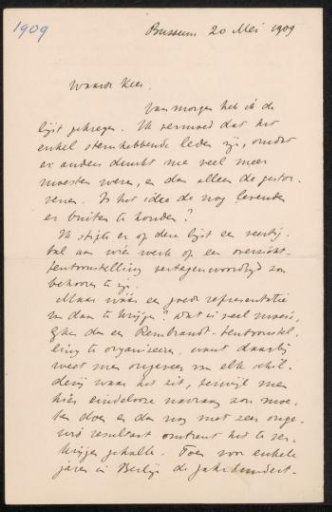 1909
Bussum 20 Mei 1909
Waarde Kees.
Van morgen heb ik de
lijst gekregen. Ik vermoed dat het
enkel stemhebbende leden zijn, omdat
er anders dunkt me veel meer
moesten wezen, en dan alleen de gestor-
venen. Is het idee de nog levenden
er buiten te houden?
Ik stipte er op deze lijst een veertig-
tal aan wier werk op een overzicht-
tentoonstelling vertegenwoordigd zou
behooren te zijn.
Maar nu een goede representatie
van dezen te krijgen? Dat is veel moeie-
dan een Rembrandt-tentoonstel-
ling te organiseeren, want daarbij
weet men ongeveer van elk schil-
derij waar het zit, terwijl men
hier eindelooze navraag zou moe-
ten doen en dan nog met zeer onge-
wis resultaat omtrent het te ver-
krijgen gehalte. Toen voor enkele
jaren in Berlijn de Jahrhundert-